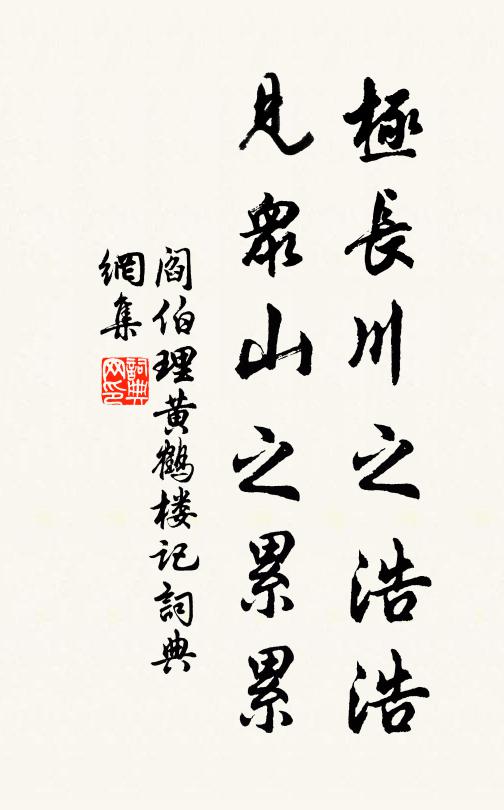 極長川之浩浩
見衆山之累累
閻伯理黄鶴楼記詞典
網集
詞典
网印